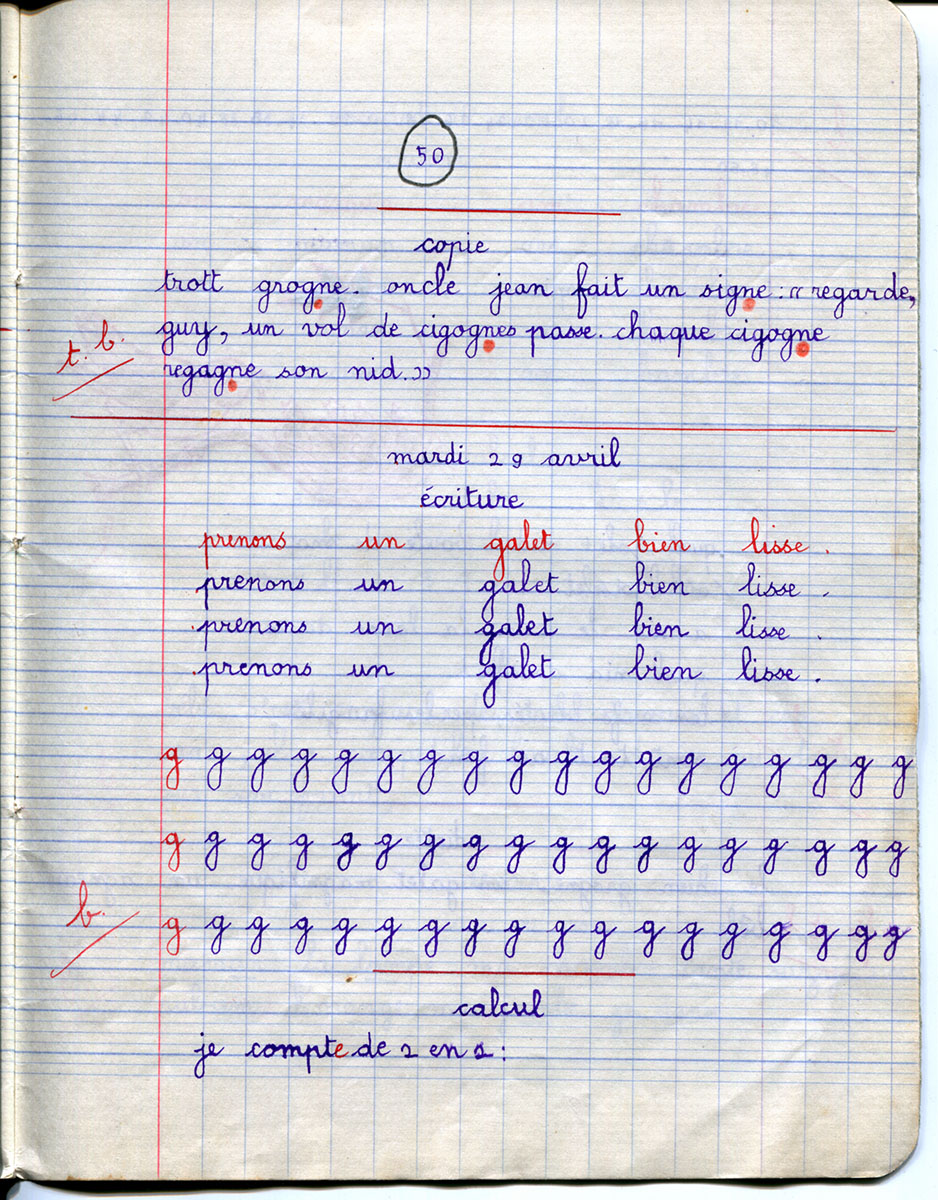 50
copie
trott grogne. oncle jean fait un signe : « regarde,
guy, un vol de cigognes passe. chaque cigogne
t. b.
regagne son nid. »
mardi 29 avril
écriture
prenons un galet bien lisse .
prenons un galet bien lisse .
prenons un galet bien lisse .
prenons un galet bien lisse .
g g g g g g g g g g g g g g g g g g
g g g g g g g g g g g g g g g g g g
b.
g g g g g g g g g g g g g g g g g g
calcul
je compte de 2 en 2 :